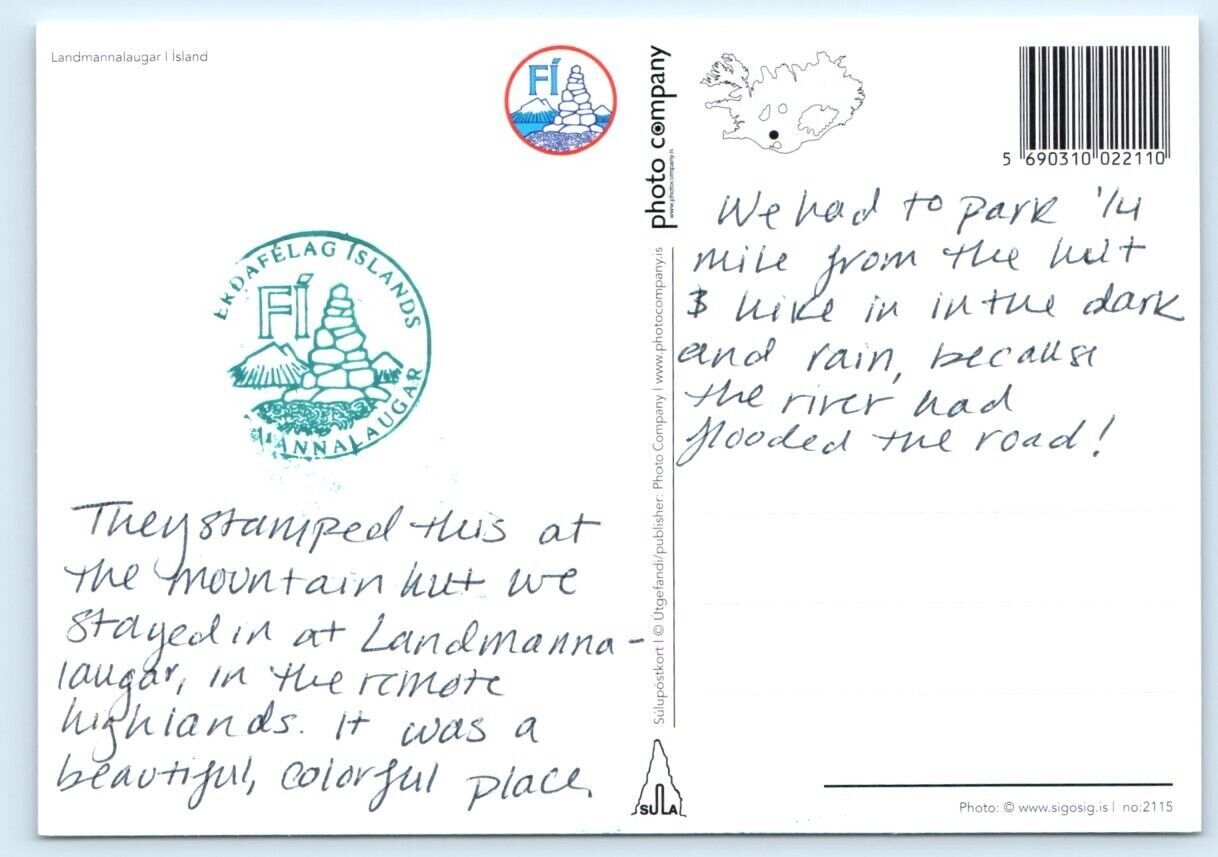 Landmannalaugar | Ísland
FÍ
ERÐAFÉLAG ÍSLANDS
FÍ
MANNALAUGAR
They stamped this at
the mountain hut we
stayed in at Landmanna-
laugar, in the remote
highlands. It was a
beautiful, colorful place.
photo company
www.photocompany.is
Súlupóstkort | © Útgefandi/publisher: Photo Company | www.photocompany.is
SULA
5 690310 022110
We had to park 1/4
mile from the hut
& hike in in the dark
and rain, because
the river had
flooded the road!
Photo: © www.sigosig.is | no:2115